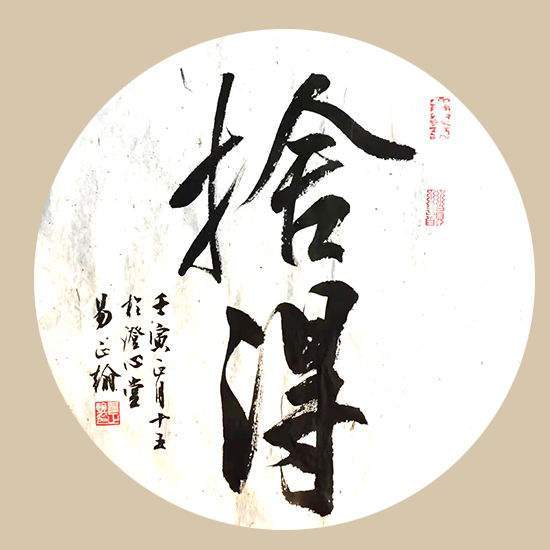 捨得
壬寅正月十五
於澄心堂
易正翰